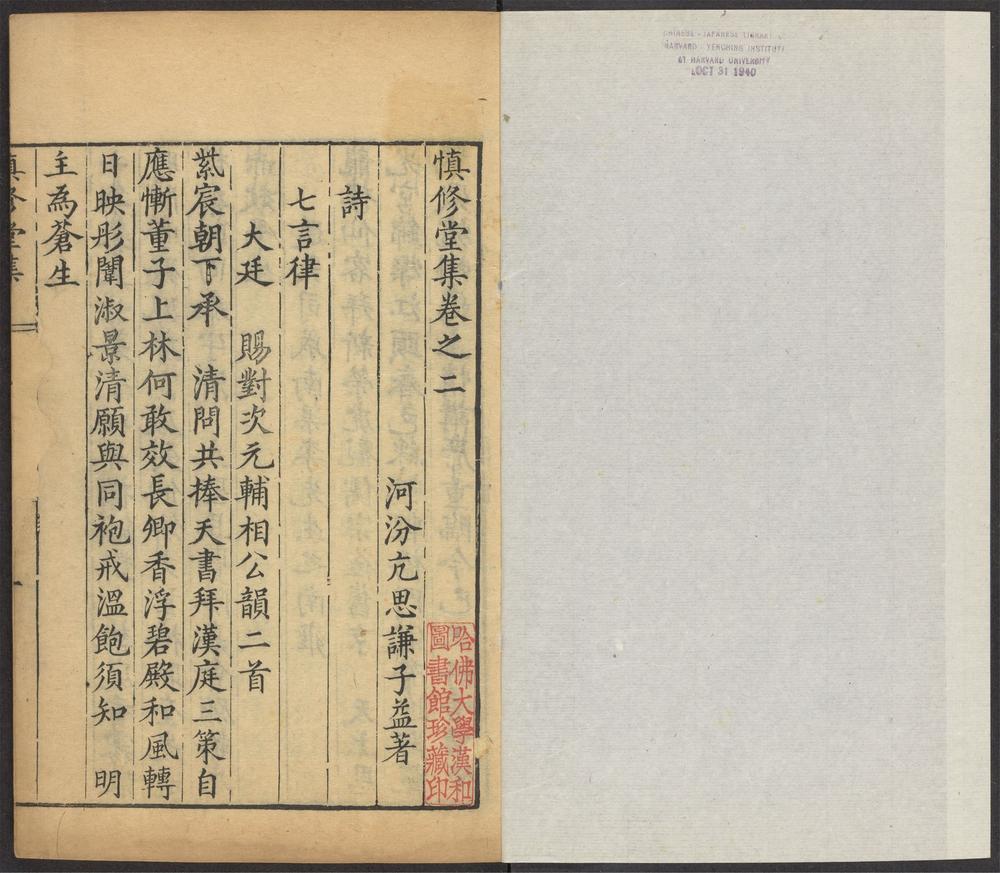 CHINESE - JAPANESE LIBRARY
HARVARD - YENCHING INSTITUTE
AT HARVARD UNIVERSITY
OCT 31 1940
慎修堂集卷之二
河汾亢思謙子益著
詩
七言律
大廷 賜對次元輔相公韻二首
紫宸朝下承 清問共捧天書拜漢庭三策自
應慚董子上林何敢效長卿香浮碧殿和風轉
日映彤闈淑景清願與同袍戒溫飽須知 明
主為蒼生
慎修堂集
一
哈佛大學漢和
圖書館珍藏印